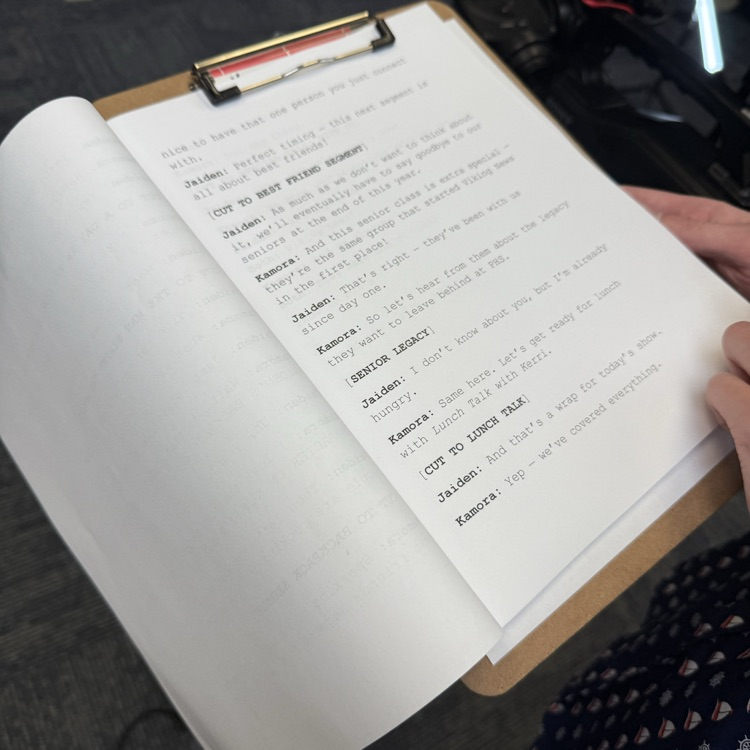 nice to have that one person you just connect
with.
Jaiden: Perfect timing – this next segment is
all about best friends!
[CUT TO BEST FRIEND SEGMENT]
Jaiden: As much as we don't want to think about
it, we'll eventually have to say goodbye to our
seniors at the end of this year.
Kamora: And this senior class is extra special –
they're the same group that started Viking News
in the first place!
Jaiden: That's right – they've been with us
since day one.
Kamora: So let's hear from them about the legacy
they want to leave behind at PHS.
[SENIOR LEGACY]
Jaiden: I don't know about you, but I'm already
hungry.
Kamora: Same here. Let's get ready for lunch
with Lunch Talk with Kerri.
[CUT TO LUNCH TALK]
Jaiden: And that's a wrap for today's show.
Kamora: Yep – we've covered everything.